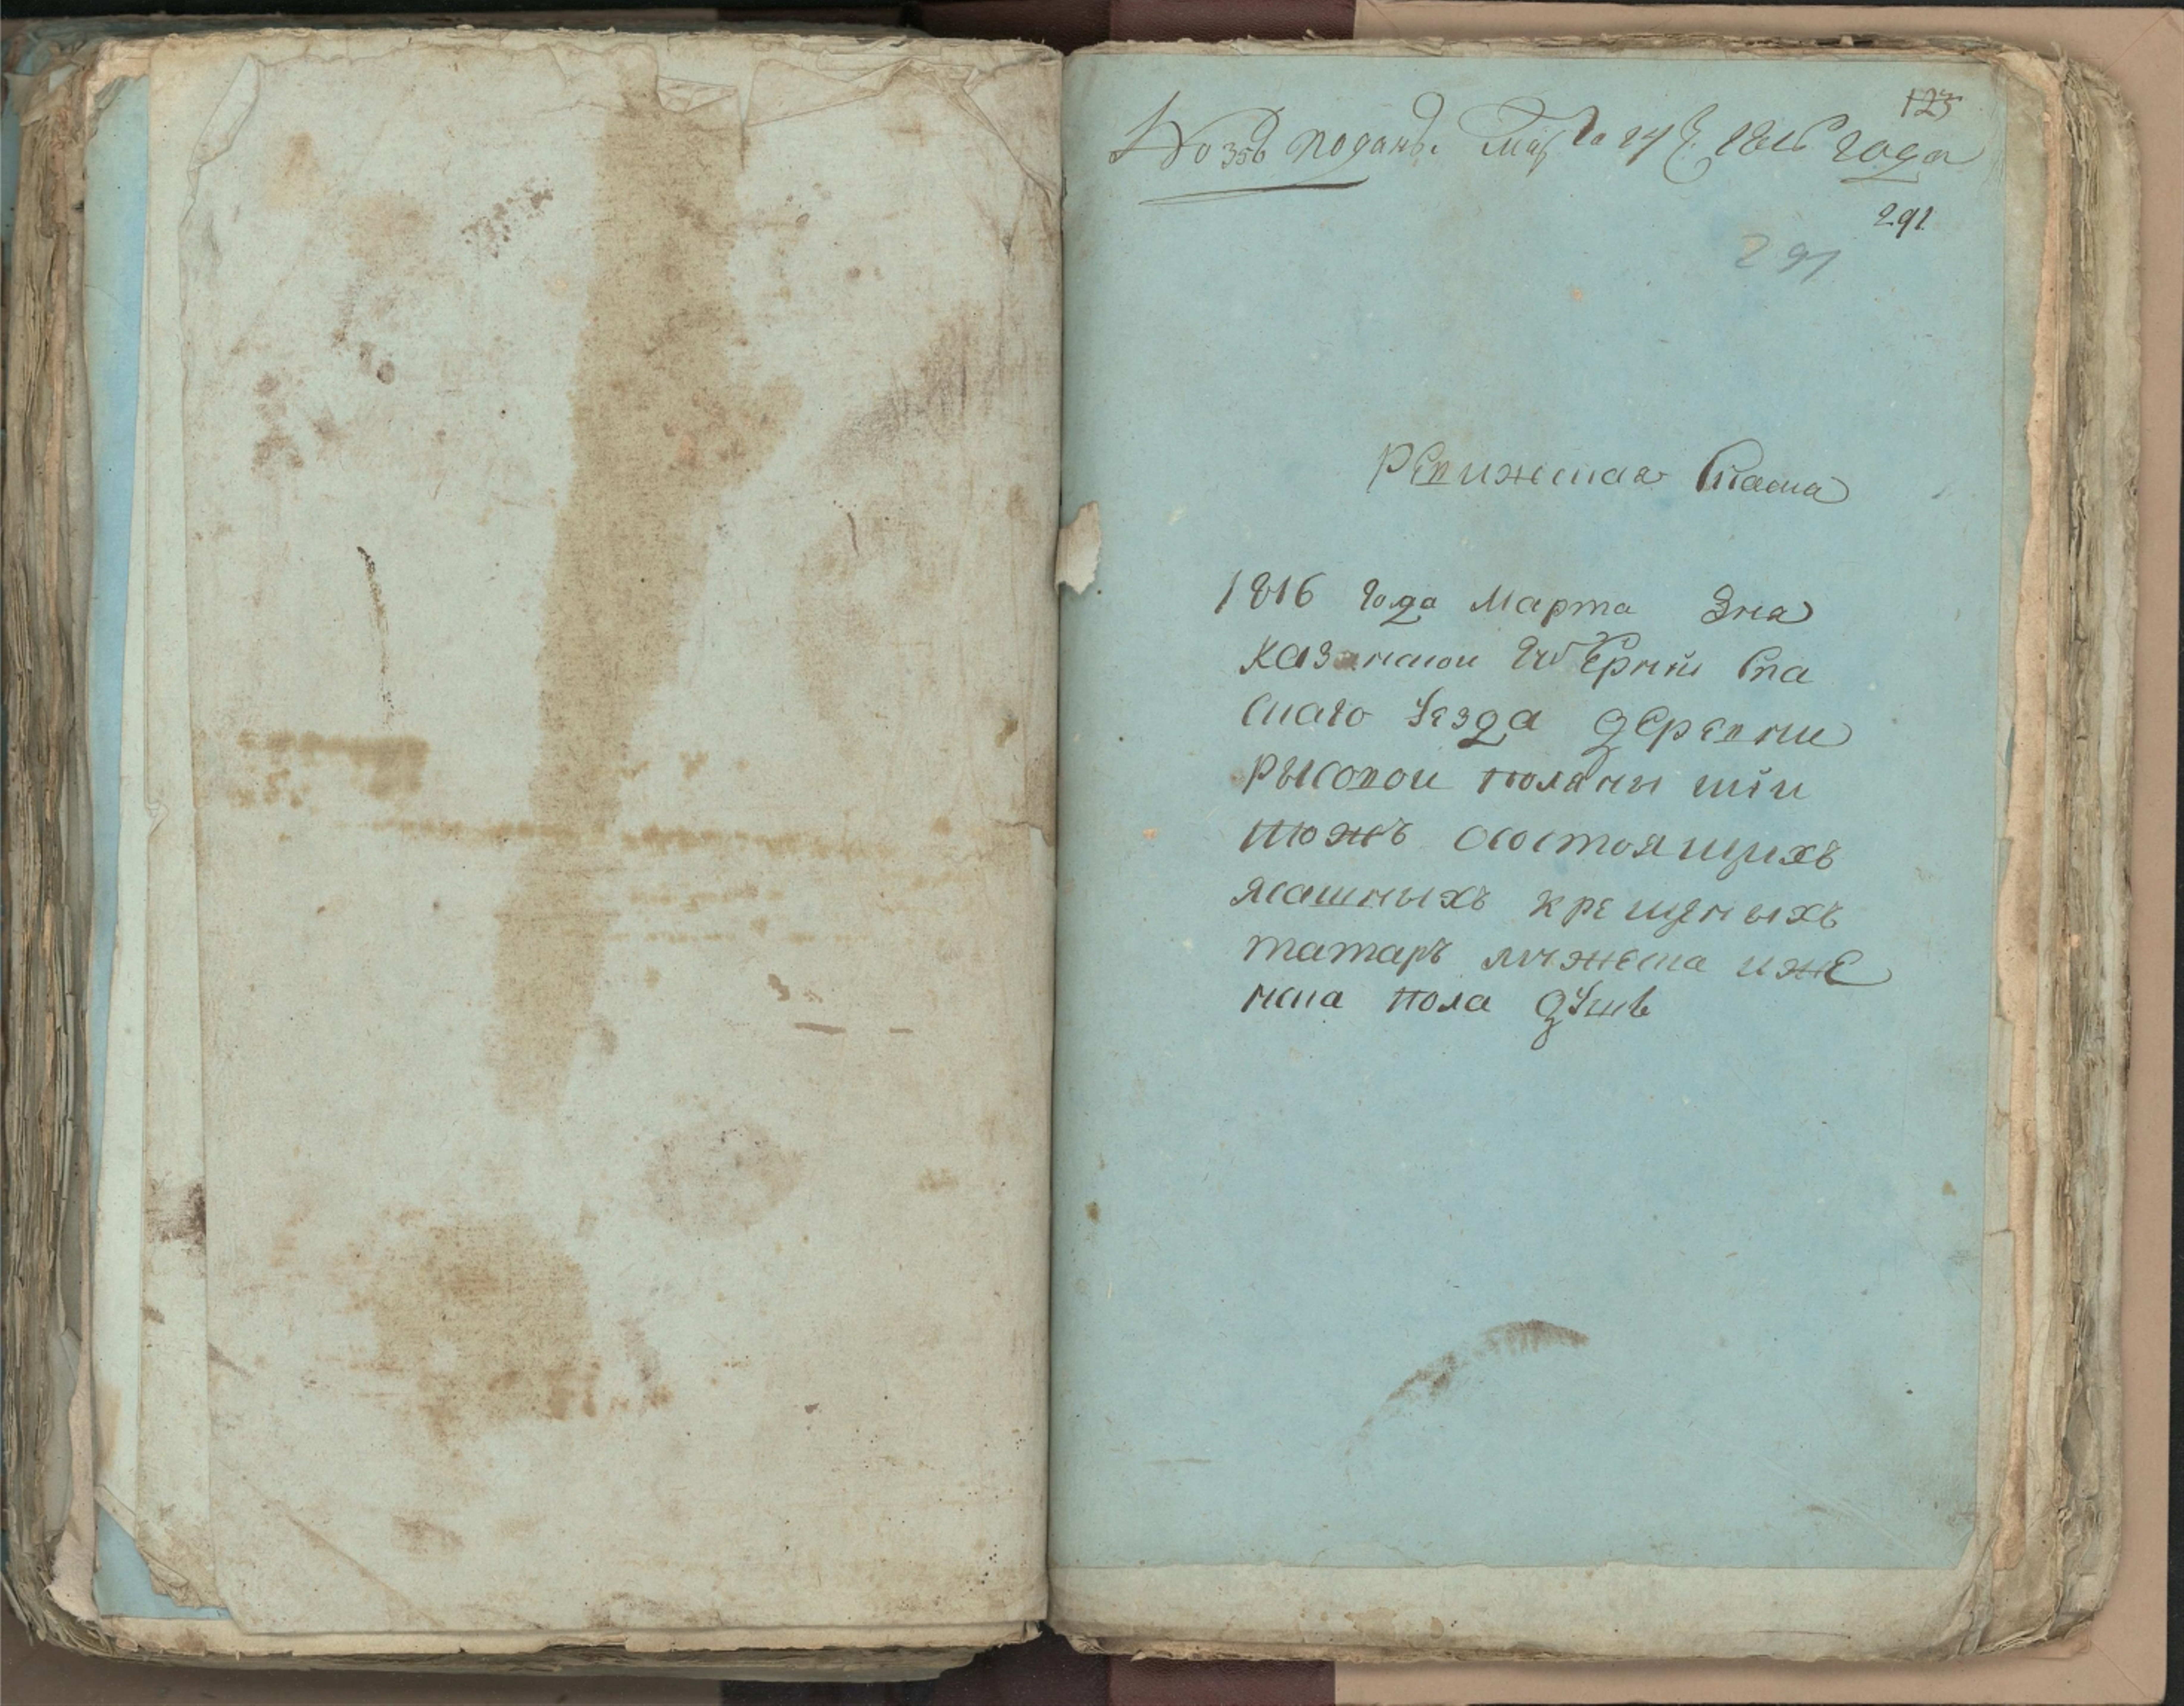 123
№ 356 поданъ Марта 24 1816 года
291
291
Ревижская Скаска
1816 года Марта дня
казанской губернии Спа
скаго уезда деревни
рысовой поляны тіи
тожъ состоящихъ
ясашныхъ крещеныхъ
татаръ мужеска иже
нска пола душъ